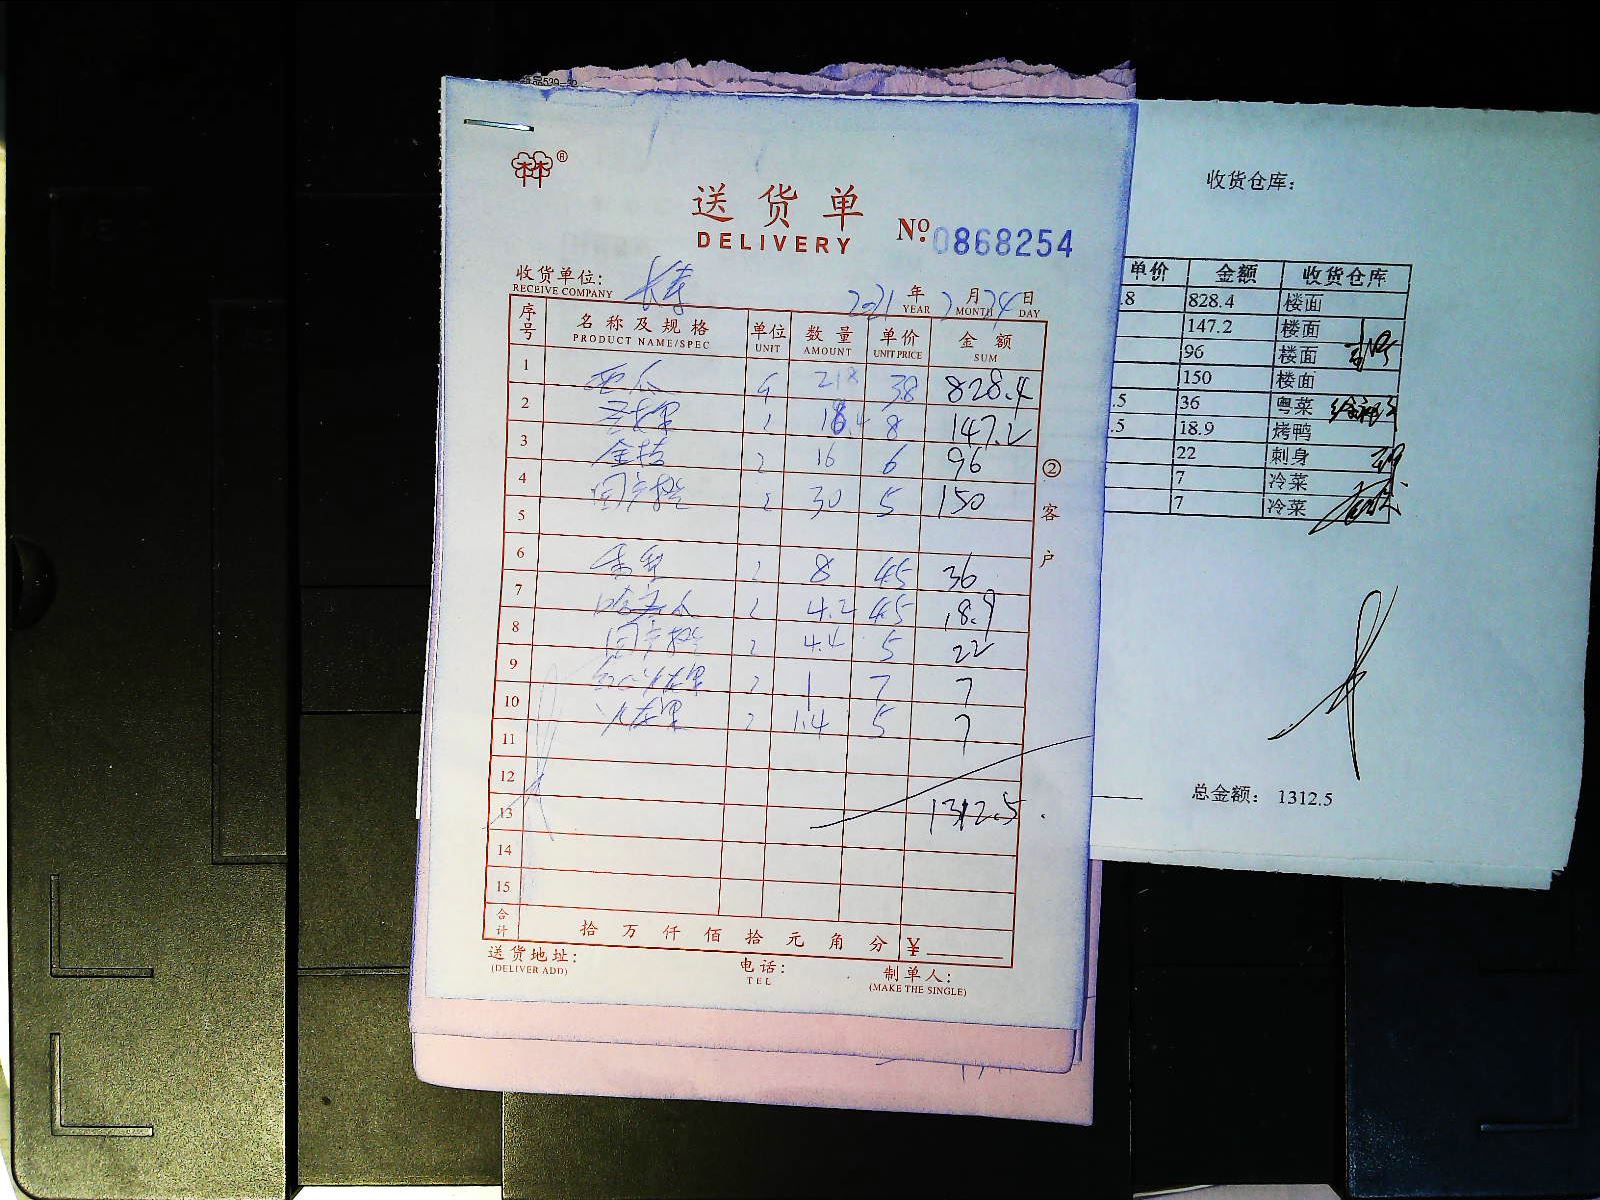 送货单
DELIVERY
№ 0868254
收货单位: 长寿
RECEIVE COMPANY
2021 年 月 24 日
YEAR MONTH DAY
序号 名称及规格 单位 数量 单价 金额
PRODUCT NAME/SPEC UNIT AMOUNT UNIT PRICE SUM
1 西瓜 218 38 828.4
2 18.4 8 147.2
3 金桔 2 16 6 96
4 2 30 5 150
5
6 2 8 45 36
7 哈密瓜 2 4.2 45 18.9
8 2 4.4 5 22
9 2 1 7 7
10 2 1.4 5 7
11
12
13 1312.5
14
15
合计 拾 万 仟 佰 拾 元 角 分 ¥
送货地址: 电话: 制单人:
(DELIVER ADD) TEL (MAKE THE SINGLE)
② 客户
收货仓库:
单价 金额 收货仓库
.8 828.4 楼面
147.2 楼面
96 楼面
150 楼面
.5 36 粤菜
.5 18.9 烤鸭
22 刺身
7 冷菜
7 冷菜
总金额: 1312.5